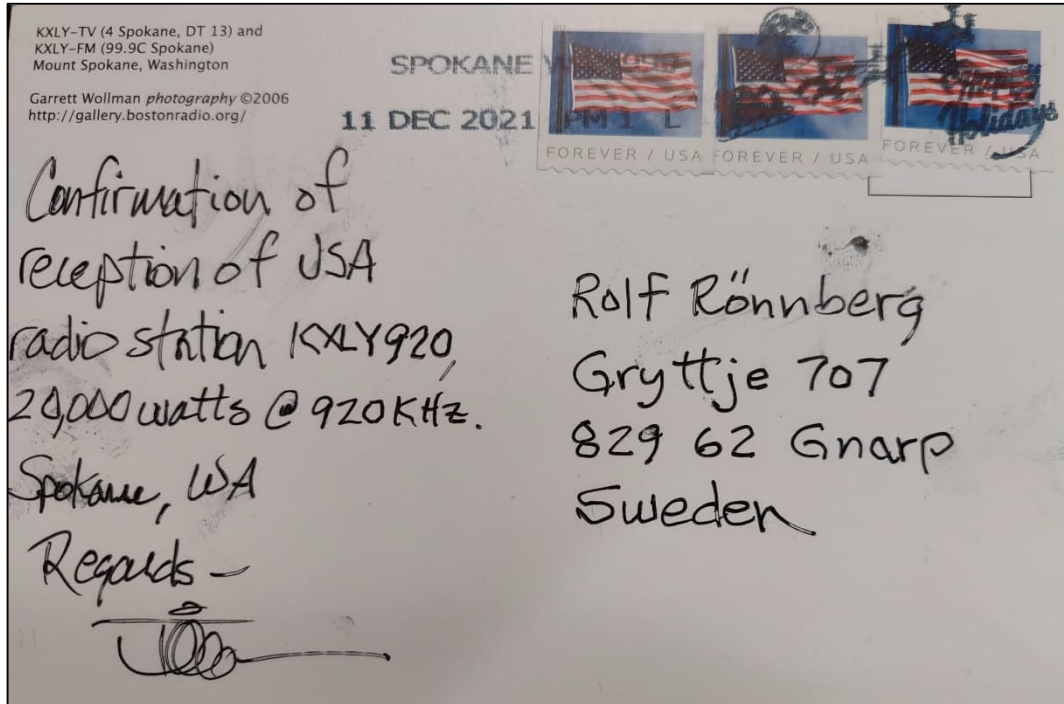 KXLY-TV (4 Spokane, DT 13) and
KXLY-FM (99.9C Spokane)
Mount Spokane, Washington
Garrett Wollman photography ©2006
http://gallery.bostonradio.org/
SPOKANE
11 DEC 2021 PM 1 L
FOREVER / USA
FOREVER / USA
FOREVER / USA
Happy
Holidays
Confirmation of
reception of USA
radio station KXLY920,
20,000 watts @ 920 KHz.
Spokane, WA
Regards -
Rolf Rönnberg
Gryttje 707
829 62 Gnarp
Sweden